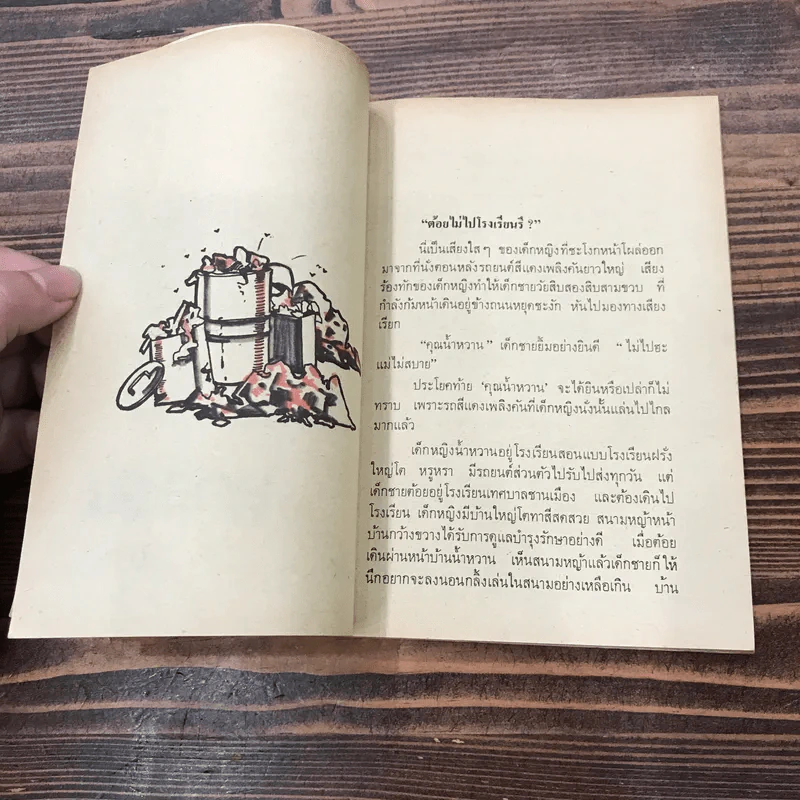 “ต้อยไม่ไปโรงเรียนรึ ?”
นี่เป็นเสียงใส ๆ ของเด็กหญิงที่ชะโงกหน้าโผล่ออก
มาจากที่นั่งตอนหลังรถยนต์สีแดงเพลิงคันยาวใหญ่ เสียง
ร้องทักของเด็กหญิงทำให้เด็กชายวัยสิบสองสิบสามขวบ ที่
กำลังก้มหน้าเดินอยู่ข้างถนนหยุดชะงัก หันไปมองทางเสียง
เรียก
“คุณน้ำหวาน” เด็กชายยิ้มอย่างยินดี “ไม่ไปฮะ
แม่ไม่สบาย”
ประโยคท้าย ‘คุณน้ำหวาน’ จะได้ยินหรือเปล่าก็ไม่
ทราบ เพราะรถสีแดงเพลิงคันที่เด็กหญิงนั่งนั้นแล่นไปไกล
มากแล้ว
เด็กหญิงน้ำหวานอยู่โรงเรียนสอนแบบโรงเรียนฝรั่ง
ใหญ่โต หรูหรา มีรถยนต์ส่วนตัวไปรับไปส่งทุกวัน แต่
เด็กชายต้อยอยู่โรงเรียนเทศบาลชานเมือง และต้องเดินไป
โรงเรียน เด็กหญิงมีบ้านใหญ่โตทาสีสดสวย สนามหญ้าหน้า
บ้านกว้างขวางได้รับการดูแลบำรุงรักษาอย่างดี เมื่อต้อย
เดินผ่านหน้าบ้านน้ำหวาน เห็นสนามหญ้าแล้วเด็กชายก็ให้
นึกอยากจะลงนอนกลิ้งเล่นในสนามอย่างเหลือเกิน บ้าน